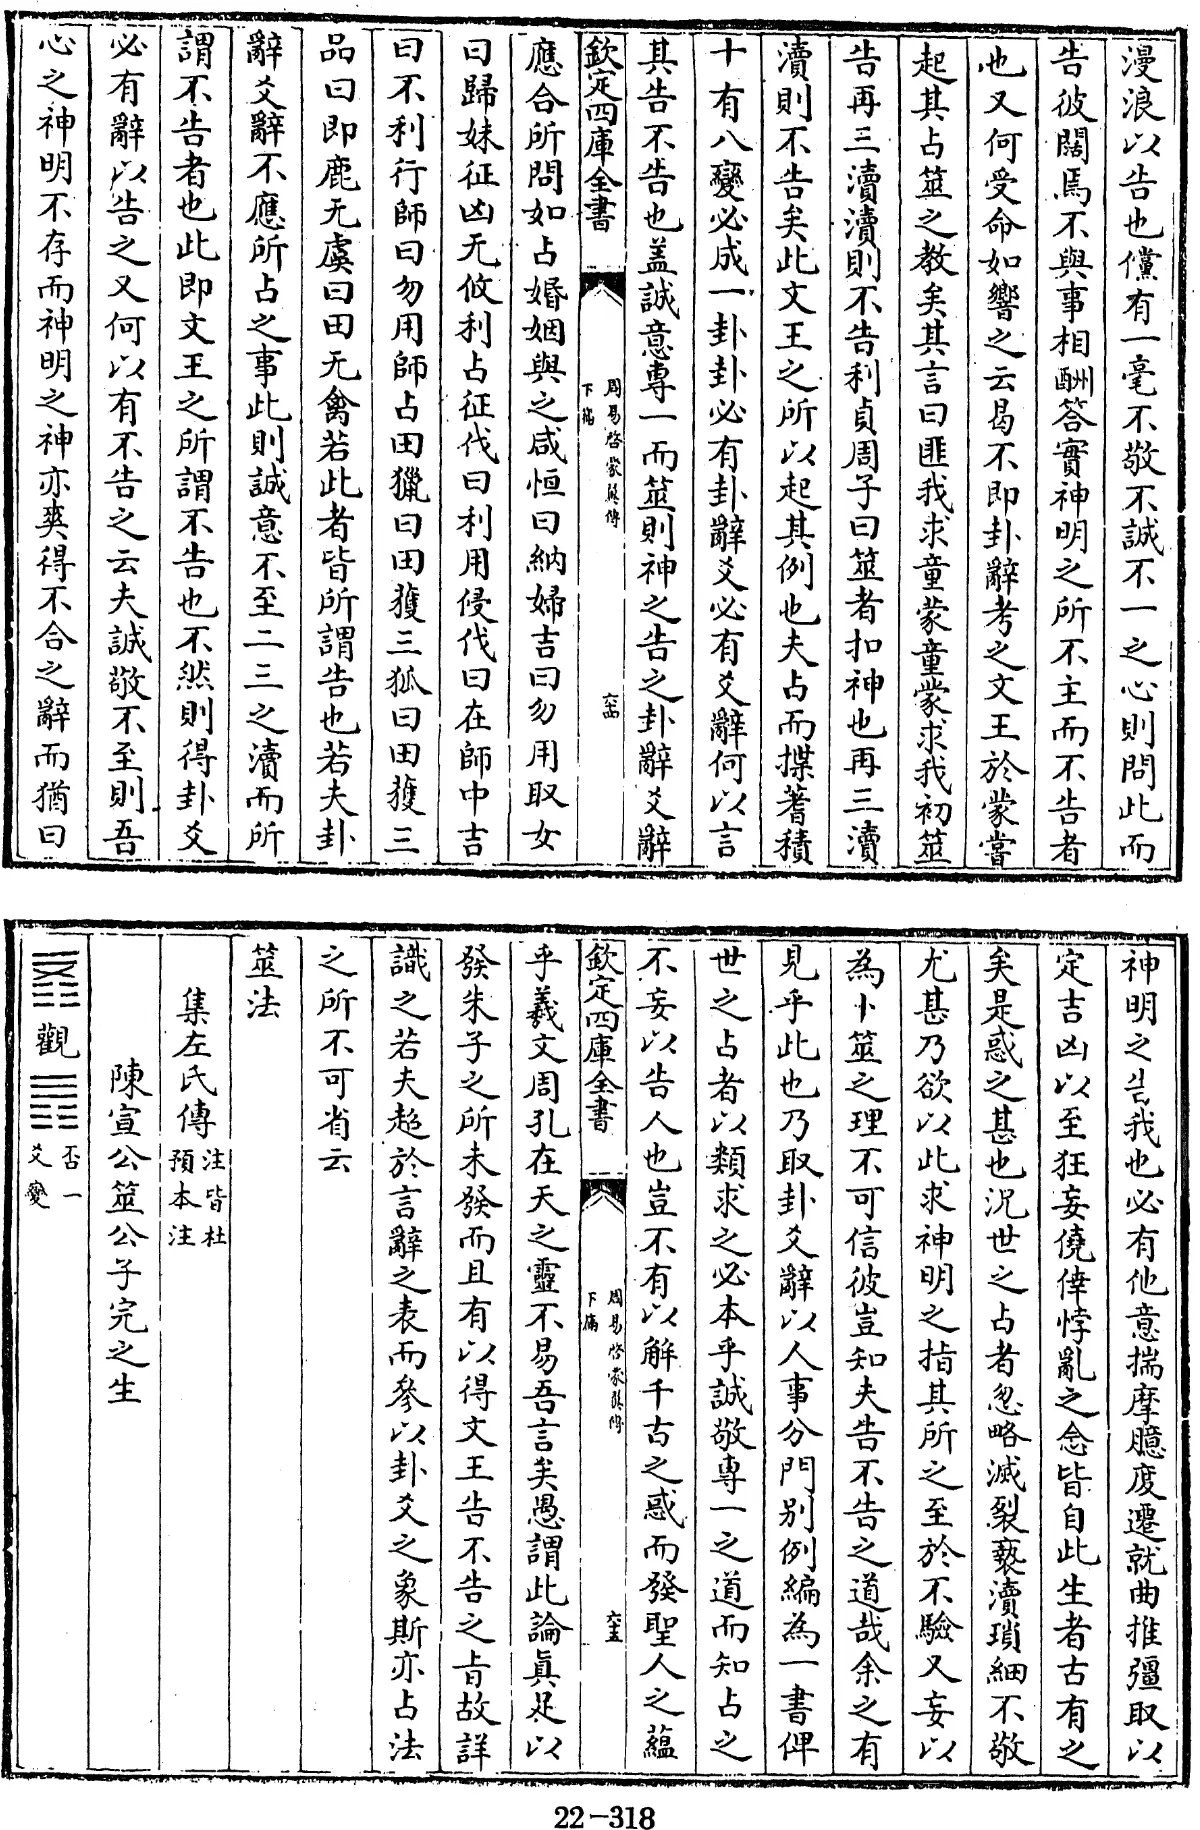 漫浪以告也儻有一毫不敬不誠不一之心則問此而
告彼闊焉不與事相酬答實神明之所不主而不告者
也又何受命如響之云曷不即卦辭考之文王於蒙嘗
起其占筮之教矣其言曰匪我求童蒙童蒙求我初筮
告再三瀆瀆則不告利貞周子曰筮者扣神也再三瀆
瀆則不告矣此文王之所以起其例也夫占而揲蓍積
十有八變必成一卦卦必有卦辭爻必有爻辭何以言
其告不告也盖誠意專一而筮則神之告之卦辭爻辭
欽定四庫全書
周易啓蒙翼傳
下篇
六四
應合所問如占婚姻與之咸恒曰納婦吉曰勿用取女
曰歸妹征凶无攸利占征伐曰利用侵伐曰在師中吉
曰不利行師曰勿用師占田獵曰田獲三狐曰田獲三
品曰即鹿无虞曰田无禽若此者皆所謂告也若夫卦
辭爻辭不應所占之事此則誠意不至二三之瀆而所
謂不告者也此即文王之所謂不告也不然則得卦爻
必有辭以告之又何以有不告之云夫誠敬不至則吾
心之神明不存而神明之神亦爽得不合之辭而猶曰
神明之告我也必有他意揣摩臆度遷就曲推彊取以
定吉凶以至狂妄僥倖悖亂之念皆自此生者古有之
矣是惑之甚也況世之占者忽略滅裂褻瀆瑣細不敬
尤甚乃欲以此求神明之指其所之至於不驗又妄以
為卜筮之理不可信彼豈知夫告不告之道哉余之有
見乎此也乃取卦爻辭以人事分門別例編為一書俾
世之占者以類求之必本乎誠敬專一之道而知占之
不妄以告人也豈不有以解千古之惑而發聖人之蘊
欽定四庫全書
周易啓蒙翼傳
下篇
六五
乎羲文周孔在天之靈不易吾言矣愚謂此論真足以
發朱子之所未發而且有以得文王告不告之旨故詳
識之若夫超於言辭之表而參以卦爻之象斯亦占法
之所不可省云
筮法
集左氏傳
注皆杜
預本注
陳宣公筮公子完之生
觀
否一
爻變
22-318